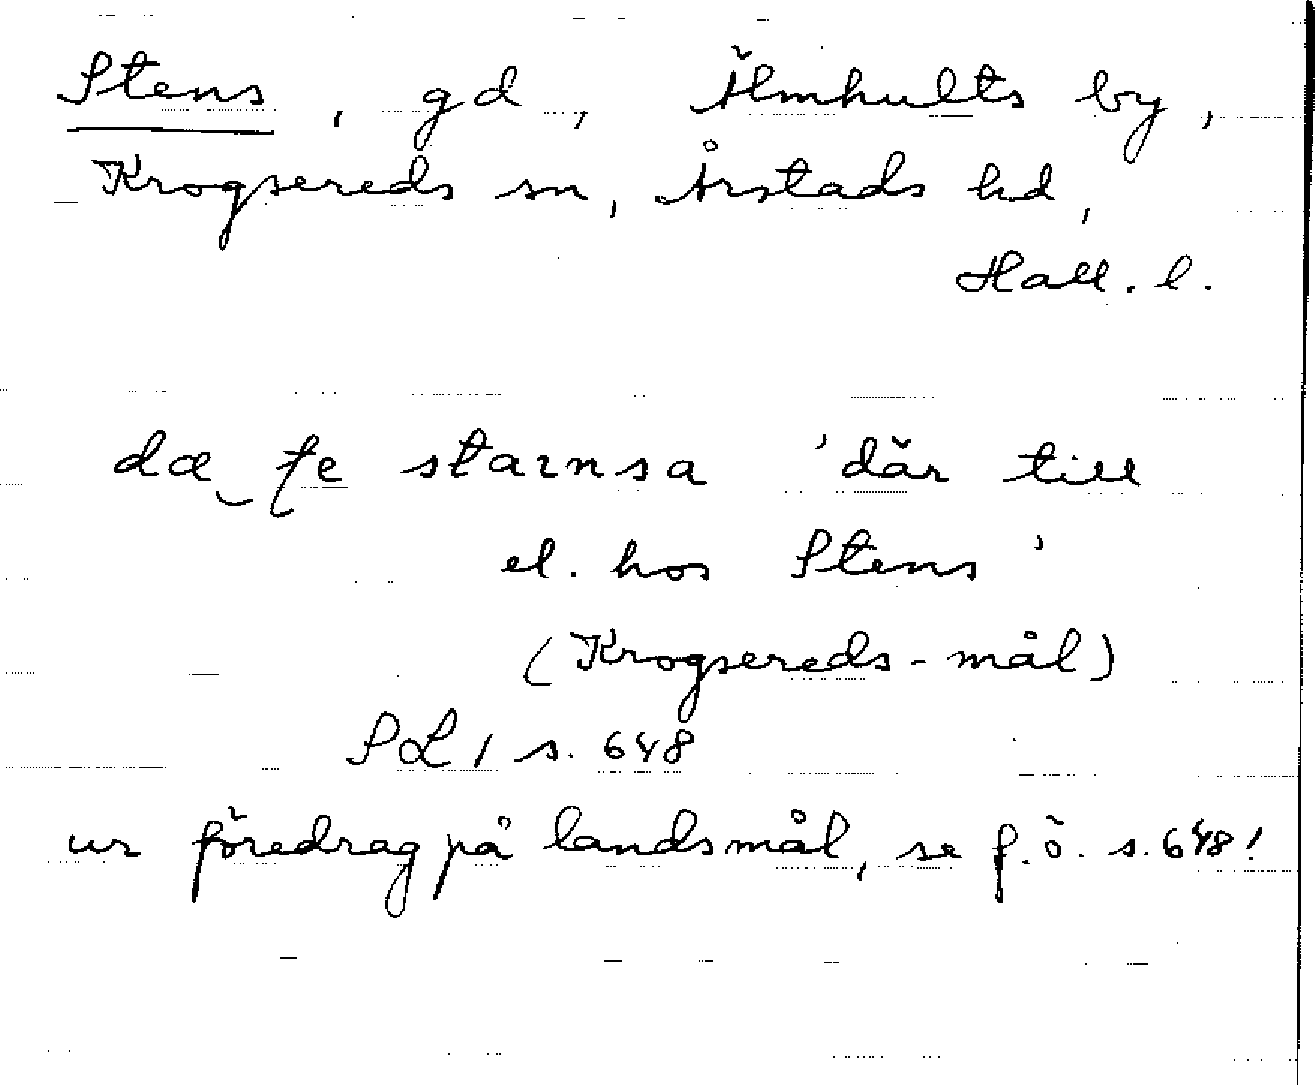 Stens, gd, Älmhults by,
Krogsereds sn, Årstads hd,
Hall. l.
dæ te staɪnsa 'där till
el. hos Stens'
(Krogsereds-mål)
SL 1 s. 648
ur föredrag på landsmål, se f.ö. s. 648!